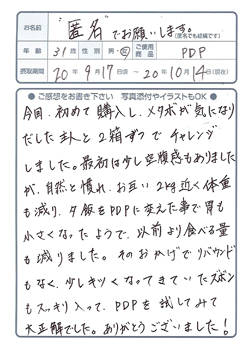 お名前 "匿名"でお願いします。
(匿名でも結構です)
年齢 31歳 性別 男・女 ご使用商品 PDP
摂取期間 20年9月17日頃〜20年10月14日(現在)
●ご感想をお書き下さい 写真添付やイラストもOK●
今回、初めて購入し、メタボが気になり
だした主人と2箱ずつでチャレンジ
しました。最初は少し空腹感もありました
が、自然と慣れ、お互い2kg近く体重
も減り、夕飯をPDPに変えた事で胃も
小さくなったようで、以前より食べる量
も減りました。そのおかげでリバウンド
もなく、少しキツくなってきていたズボン
もスッキリ入って、PDPを試してみて
大正解でした。ありがとうございました!